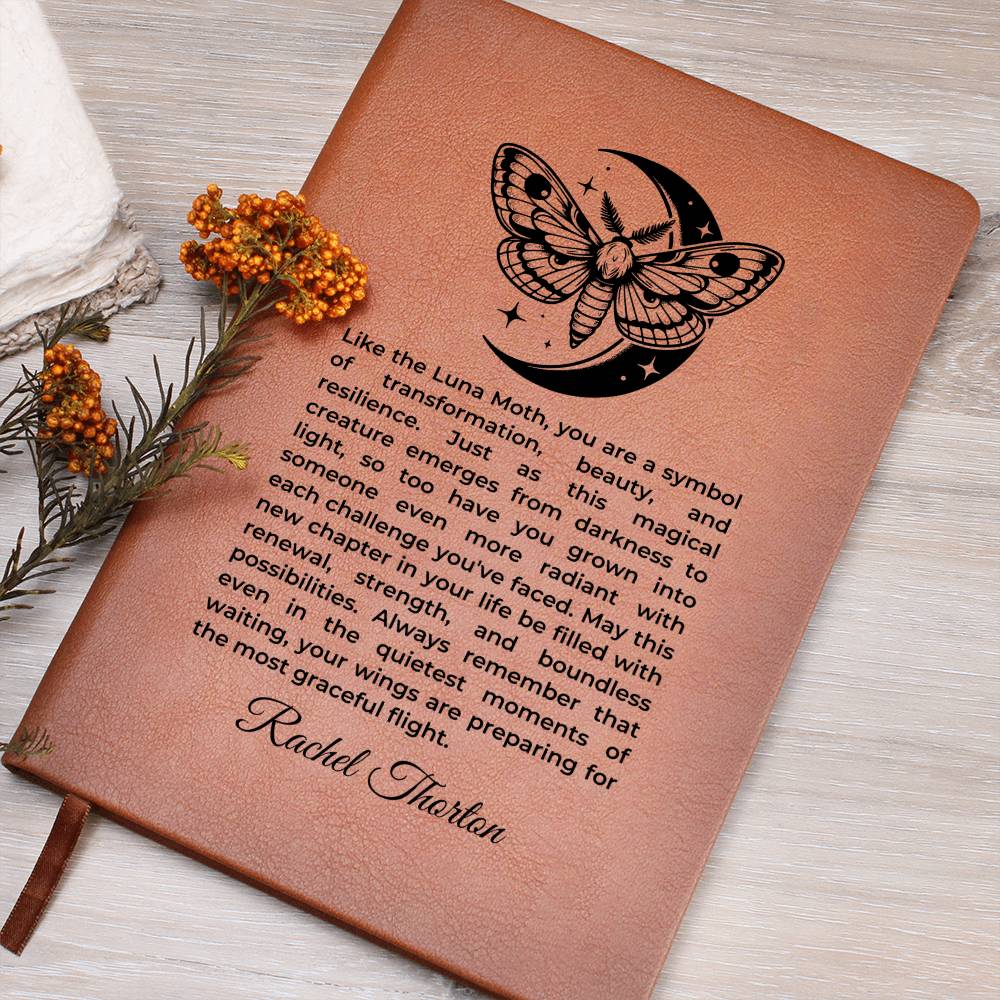 Like the Luna Moth, you are a symbol
of transformation, beauty, and
resilience. Just as this magical
creature emerges from darkness to
light, so too have you grown into
someone even more radiant with
each challenge you've faced. May this
new chapter in your life be filled with
renewal, strength, and boundless
possibilities. Always remember that
even in the quietest moments of
waiting, your wings are preparing for
the most graceful flight.
Rachel Thorton